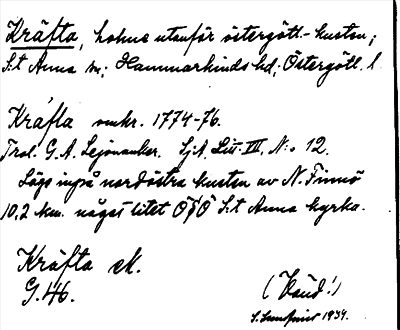 Kräfta, holme utanför östergötl.-kusten;
S:t Anna sn; Hammarkinds hd; Östergötl. l.
Kräfta omkr. 1774-76.
Trol. G. A. Lejonancker. Sj.A. Litt. VII, N:o 12.
Lägs inpå nordöstra kusten av N. Finnö
10,2 km. något litet ÖSÖ S:t Anna kyrka.
Kräfta ek.
G.46.
(Känd!)
S. 1934.